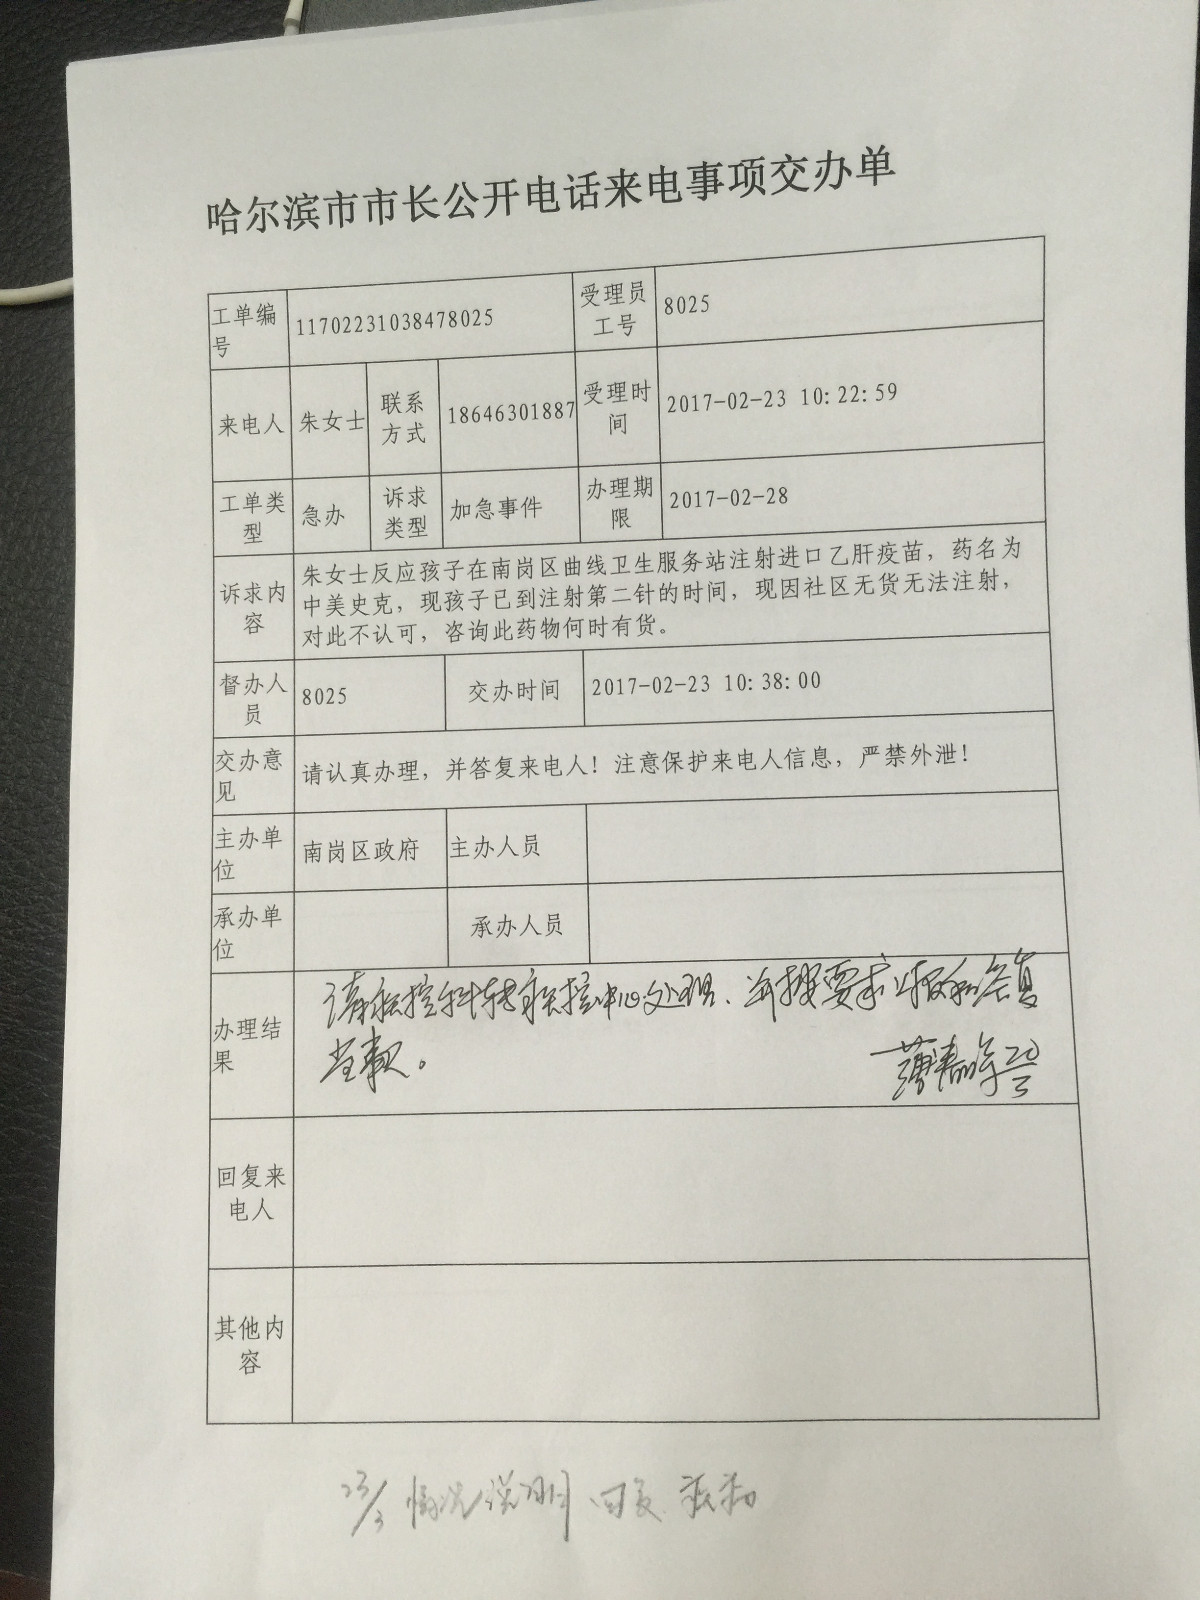 哈尔滨市市长公开电话来电事项交办单
工单编号 11702231038478025 受理员工号 8025
来电人 朱女士 联系方式 18646301887 受理时间 2017-02-23 10:22:59
工单类型 急办 诉求类型 加急事件 办理期限 2017-02-28
诉求内容
朱女士反应孩子在南岗区曲线卫生服务站注射进口乙肝疫苗，药名为
中美史克，现孩子已到注射第二针的时间，现因社区无货无法注射，
对此不认可，咨询此药物何时有货。
督办人员 8025 交办时间 2017-02-23 10:38:00
交办意见 请认真办理，并答复来电人！注意保护来电人信息，严禁外泄！
主办单位 南岗区政府 主办人员
承办单位 承办人员
办理结果
请疾控科转疾控中心处理、并按要求上报和答复
回复来电人
其他内容
23/3 情况说明 回复